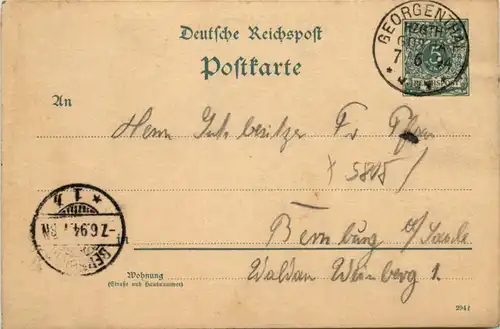 Deutsche Reichspost
Postkarte
GEORGENTHAL
HZGTH.
7 6
5
An
Herrn Gutsbesitzer Fr
5805
-7.6.94.
in Bernburg a/Saale
Waldau Weinberg 1.
Wohnung
(Straße und Hausnummer)
294 i